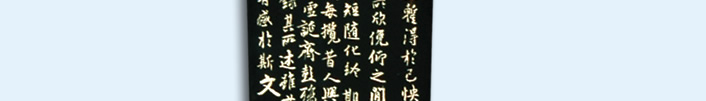 暫得於己快
欣俛仰之間
短隨化終期
每攬昔人興
虛誕齊彭殤
錄其所述雖
感於斯文